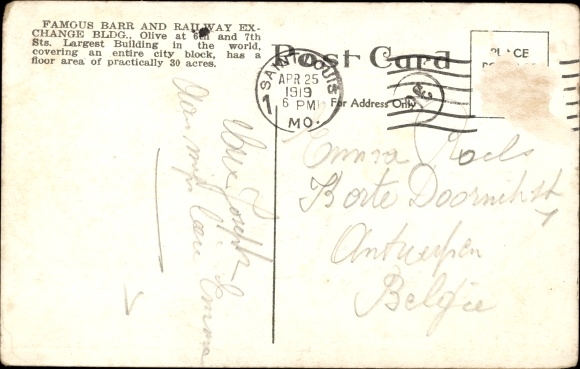 FAMOUS BARR AND RAILWAY EX-
CHANGE BLDG., Olive at 6th and 7th
Sts. Largest Building in the world,
covering an entire city block, has a
floor area of practically 30 acres.
Post Card
PLACE
For Address Only
SAINT LOUIS
APR 25
1919
6 PM
MO.
1
Emma Roels
Korte Doornikstr
7
Antwerpen
Belgïe
Aan mijn lieve Emma
Joseph